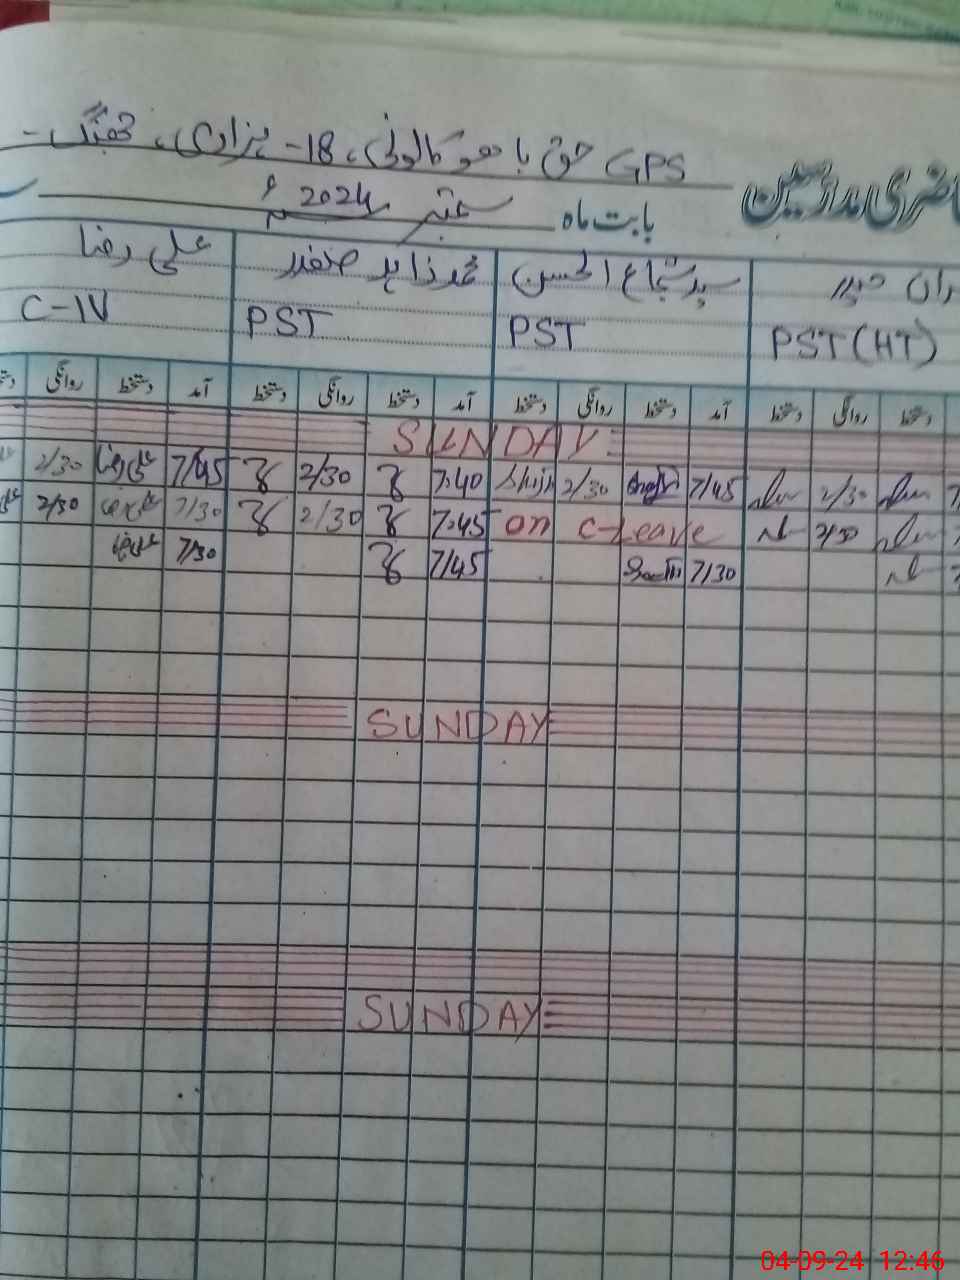 GPS حق باهو کالونی، 18- ہزاری، جھنگ -
حاضری مدرسین
بابت ماہ ستمبر 2024ء
حیدر سید شجاع الحسن محمد زاہد صفدر علی رضا
PST (HT) PST PST C-IV
دستخط روانگی دستخط آمد دستخط روانگی دستخط آمد دستخط روانگی دستخط آمد دستخط روانگی
SUNDAY
2/30 7/45 2/30 7:40 2/30 7/45 علی رضا 2/30
2/30 on C-Leave 7:45 2/30 7/30 علی رضا 2/30
7/30 7/45 7/30 علی رضا
SUNDAY
SUNDAY
04-09-24 12:46